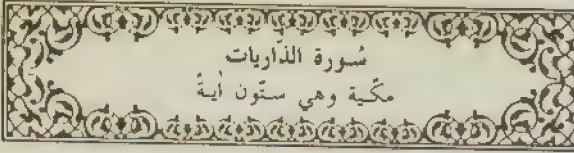 سورة الذاريات
مكّية وهي ستّون أيةً